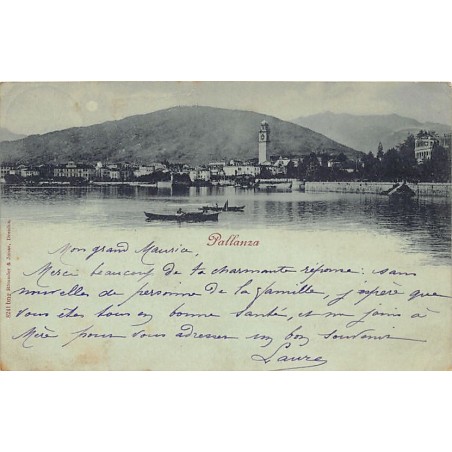 Pallanza
Mon grand Maurice,
Merci beaucoup de ta charmante réponse: sans
nouvelles de personne de la famille, j'espère que
vous êtes tous en bonne santé, et me joins à
Mère pour vous adresser un bon souvenir
Laure